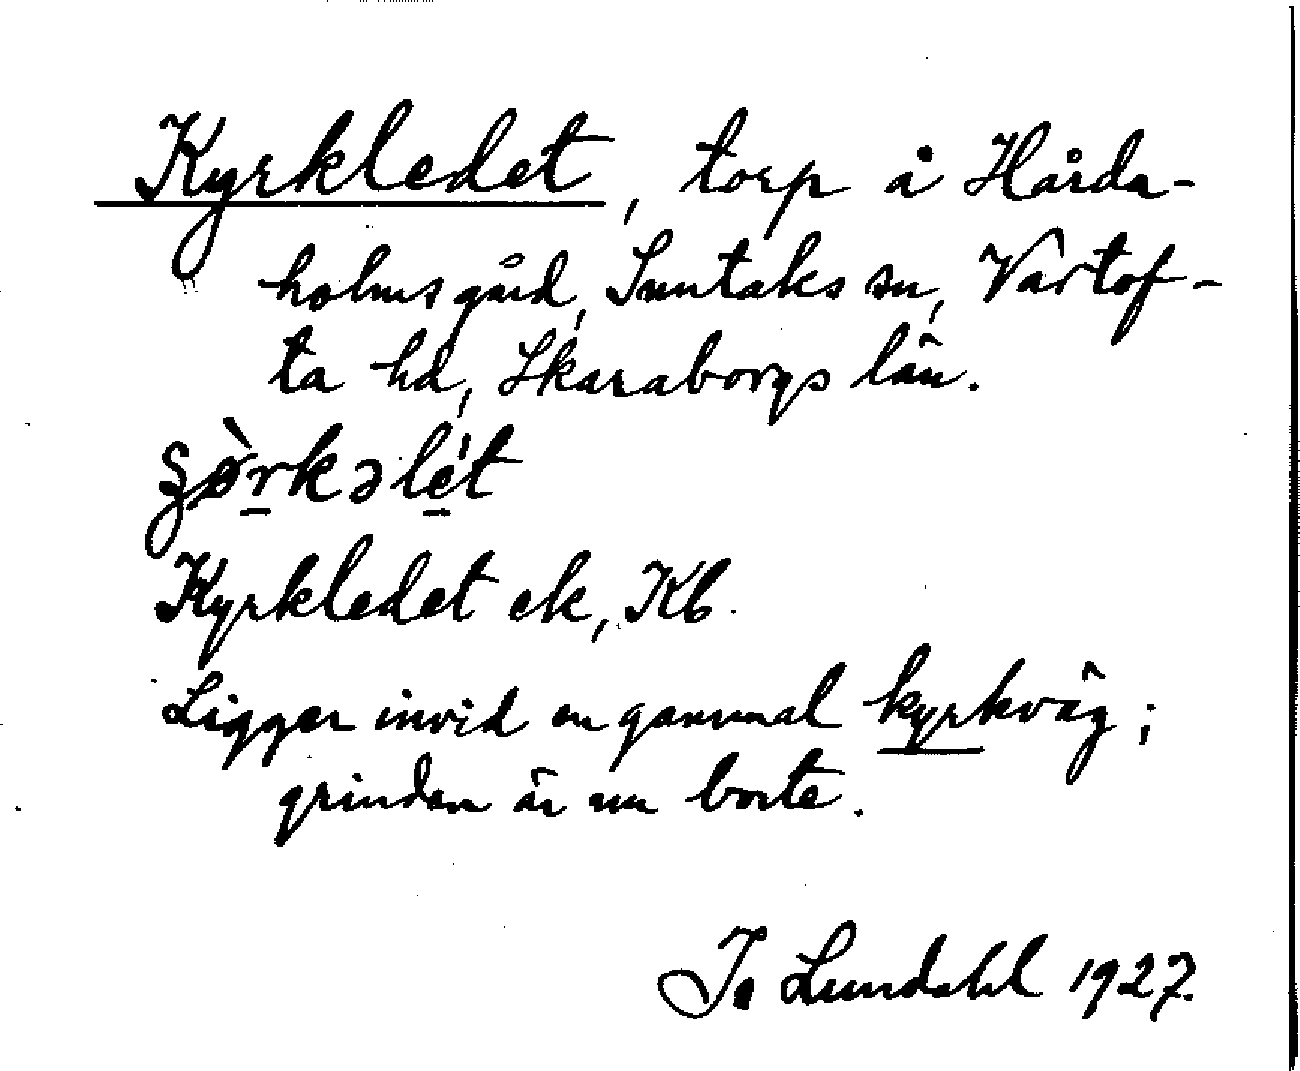 Kyrkledet, torp å Hårda-
holmsgård, Suntaks sn, Vartof-
ta hd, Skaraborgs län.
ʂø̀rkəlét
Kyrkledet ek, Kb.
Ligger invid en gammal kyrkväg;
grinden är nu borte.
I. Lundahl 1927.